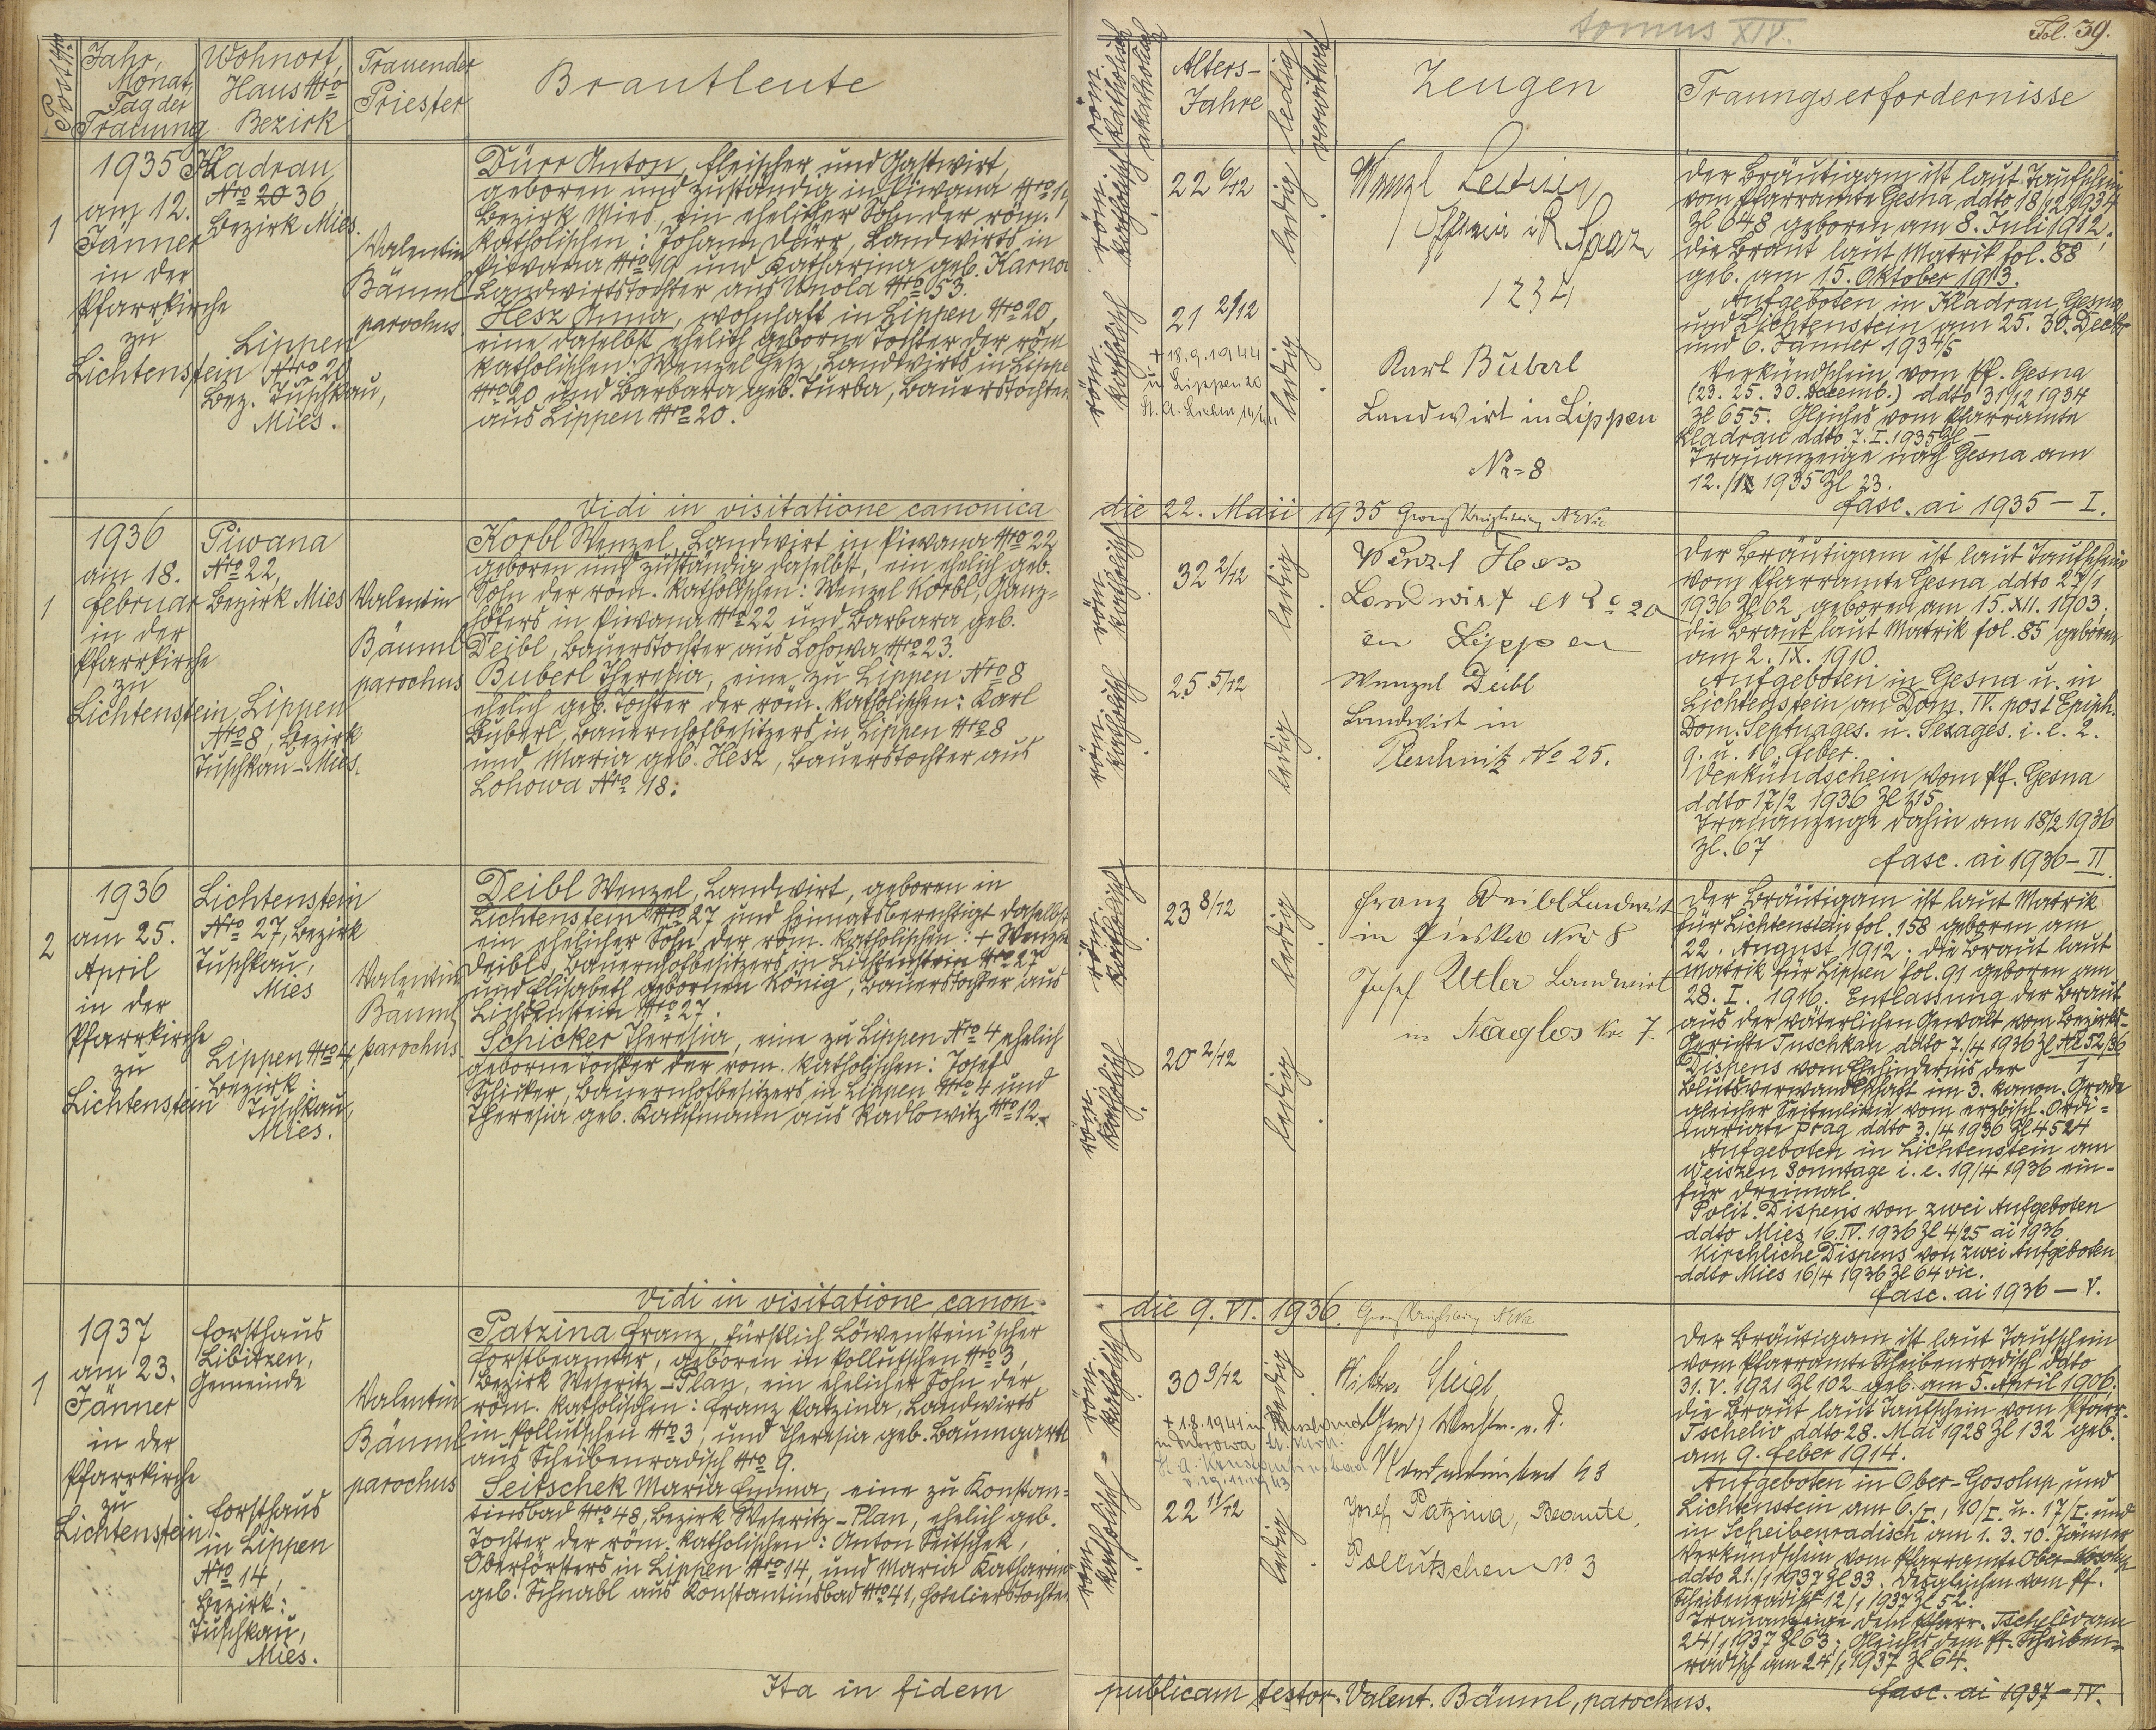 tomus XIV.
Fol. 39.
Post Nro
Jahr,
Monat,
Tag der
Trauung
Wohnort,
Haus Nro
Bezirk
Trauender
Priester
Brautleute
röm. katholisch
akatholisch
Alters-
Jahre
ledig
verwitwet
Zeugen
Trauungserfordernisse
1
1935
am 12.
Jänner
in der
Pfarrkirche
zu
Lichtenstein
Kladrau,
Nro 20 36
Bezirk Mies.
Lippen
Nro 20
Bez. Tuschkau,
Mies.
Valentin
Bäuml
parochus
Dürr Anton, Fleischer und Gastwirt,
geboren und zuständig in Piwana Nro 19
Bezirk Mies, ein ehelicher Sohn der röm.
katholischen: Johann Dürr, Landwirts in
Piwana Nro 19 und Katharina geb.
Landwirtstochter aus Wuola Nro 53.
Hesz Anna, wohnhaft in Lippen Nro 20,
eine daselbst ehelich geborne Tochter der röm.
katholischen: Wenzel Hesz, Landwirts in Lippen
Nro 20 und Barbara geb. Turba, Bauerstochter
aus Lippen Nro 20.
röm. katholisch
22 6/12
ledig
röm. katholisch
21 2/12
ledig
+ 18.9.1944
in Lippen 20
Wenzl
1234
Karl Buberl
Landwirt in Lippen
Nr = 8
Der Bräutigam ist laut Taufschein
vom Pfarramte Gesna ddto 18/12 1934
Zl 648 geboren am 8. Juli 1912,
die Braut laut Matrik fol. 88
geb. am 15. Oktober 1913.
Aufgeboten in Kladrau, Gesna
und Lichtenstein am 25. 30. Decbr
und 6. Jänner 1934/5
Verkündschein vom Pf. Gesna
(23. 25. 30. Decemb.) ddto 31/12 1934
Zl 655. Gleiches vom Pfarramte
Kladrau ddto 7. I. 1935 Zl –
Trauanzeige nach Gesna am
12./1 1935 Zl 23.
fasc. ai 1935 – I.
Vidi in visitatione canonica
die 22. Maii 1935
1
1936
am 18.
Februar
in der
Pfarrkirche
zu
Lichtenstein
Piwana
Nro 22,
Bezirk Mies
Lippen
Nro 8, Bezirk
Tuschkau – Mies.
Valentin
Bäuml
parochus
Korbl Wenzel, Landwirt in Piwana Nro 22
geboren und zuständig daselbst, ein ehelich geb.
Sohn der röm. katholischen: Wenzel Korbl, Ganz=
höfers in Piwana Nro 22 und Barbara geb.
Deibl, Bauerstochter aus Lohowa Nro 23.
Buberl Theresia, eine zu Lippen Nro 8
ehelich geb. Tochter der röm. katholischen: Karl
Buberl, Bauernhofbesitzers in Lippen Nro 8
und Maria geb. Hesz, Bauerstochter aus
Lohowa Nro 18.
röm. katholisch
32 2/12
ledig
röm. katholisch
25 5/12
ledig
Wenzl Hess
Landwirt Nro 20
in Lippen
Wenzel Deibl
Landwirt in
No 25.
Der Bräutigam ist laut Taufschein
vom Pfarramte Gesna ddto 27/1
1936 Zl 62 geboren am 15. XII. 1903,
die Braut laut Matrik fol. 85 geboren
am 2. IX. 1910.
Aufgeboten in Gesna u. in
Lichtenstein an Dom. IV. post Epiph.
Dom. Septuages. u. Sexages. i. e. 2.
9. u. 16. Feber.
Verkündschein vom Pf. Gesna
ddto 17/2 1936 Zl 115
Trauanzeige dahin am 18/2 1936
Zl. 67
fasc. ai 1936 – II
2
1936
am 25.
April
in der
Pfarrkirche
zu
Lichtenstein
Lichtenstein
Nro 27, Bezirk
Tuschkau,
Mies
Lippen Nro 4,
Bezirk:
Tuschkau,
Mies.
Valentin
Bäuml
parochus
Deibl Wenzel, Landwirt, geboren in
Lichtenstein Nro 27 und heimatsberechtigt daselbst
ein ehelicher Sohn der röm. katholischen: + Wenzel
Deibl, Bauernhofbesitzers in Lichtenstein Nro 27
und Elisabeth gebornen König, Bauerstochter aus
Lichtenstein Nro 27.
Schicker Theresia, eine zu Lippen Nro 4 ehelich
geborne Tochter der röm. katholischen: Josef
Schicker, Bauernhofbesitzers in Lippen Nro 4 und
Theresia geb. Kaufmann aus Radlowitz Nro 12.
röm. katholisch
23 8/12
ledig
röm. katholisch
20 2/12
ledig
Franz Deibl Landwirt
in Nro 8
Josef Utler Landwirt
in Naglos Nr. 7.
Der Bräutigam ist laut Matrik
für Lichtenstein fol. 158 geboren am
22. August 1912. Die Braut laut
Matrik für Lippen fol. 91 geboren am
28. I. 1916. Entlassung der Braut
aus der väterlichen Gewalt vom Bezirks-
Gerichte Tuschkau ddto 7./4 1936 Zl Nc 52/36
Dispens vom Ehehindernis der
Blutsverwandtschaft im 3. kanon. Grade
gleicher Seitenlinie vom erzbisch. Ordi=
nariate Prag ddto 3./4 1936 Zl 4524
Aufgeboten in Lichtenstein am
Weiszen Sonntage i. e. 19/4 1936 ein-
für dreimal.
Polit. Dispens von zwei Aufgeboten
ddto Mies 16. IV. 1936 Zl 4/25 ai 1936.
Kirchliche Dispens von zwei Aufgeboten
ddto Mies 16/4 1936 Zl 64 vic.
fasc. ai 1936 – V.
Vidi in visitatione canon.
die 9. VI. 1936.
1
1937
am 23.
Jänner
in der
Pfarrkirche
zu
Lichtenstein
Forsthaus
Libitzen,
Gemeinde
Forsthaus
in Lippen
Nro 14,
Bezirk:
Tuschkau,
Mies.
Valentin
Bäuml
parochus
Patzina Franz, fürstlich Löwenstein'scher
Forstbeamter, geboren in Pollutschen Nro 3,
Bezirk Weseritz – Plan, ein ehelicher Sohn der
röm. katholischen: Franz Patzina, Landwirts
in Pollutschen Nro 3, und Theresia geb. Baumgartl
aus Scheibenradisch Nro 9.
Seitschek Maria Emma, eine zu Konstan=
tinsbad Nro 48, Bezirk Weseritz – Plan, ehelich geb.
Tochter der röm. katholischen: Anton Seitschek,
Oberförsters in Lippen Nro 14, und Maria Katharina
geb. Schnabl aus Konstantinsbad Nro 41, Hotelierstochter
röm. katholisch
30 9/12
ledig
+ 1.8.1941 in Russland
röm. katholisch
22 11/12
ledig
Josef Patzina, Beamte,
Pollutschen No 3
Der Bräutigam ist laut Taufschein
vom Pfarramte Scheibenradisch ddto
31. V. 1921 Zl 102 geb. am 5. April 1906,
die Braut laut Taufschein vom Pfarr-
Tscheliv ddto 28. Mai 1928 Zl 132 geb.
am 9. Feber 1914.
Aufgeboten in Ober-Gosolup, und
Lichtenstein am 6./I., 10/I. u. 17/I. und
in Scheibenradisch am 1. 3. 10. Jänner
Verkündschein vom Pfarramte Ober-Gosolup
ddto 21./1 1937 Zl 33. Desgleichen vom Pf.
Scheibenradisch 12/1 1937 Zl 52.
Trauanzeige dem Pfarr. Tscheliv am
24/1 1937 Zl 63; Gleiches dem Pf. Scheiben=
radisch am 24/1 1937 Zl 64.
fasc. ai 1937 – IV.
Ita in fidem
publicam testor. Valent. Bäuml, parochus.